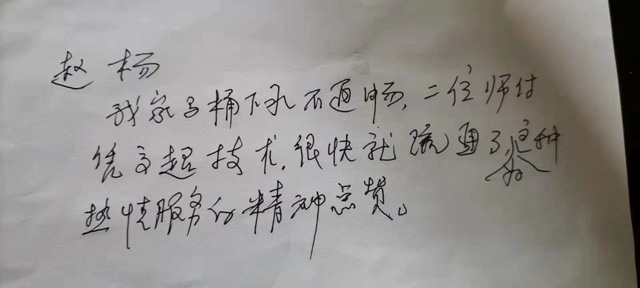 赵 杨
我家马桶下水不通畅，二位师付
凭高超技术，很快就疏通了，为这种
热情服务的精神点赞。